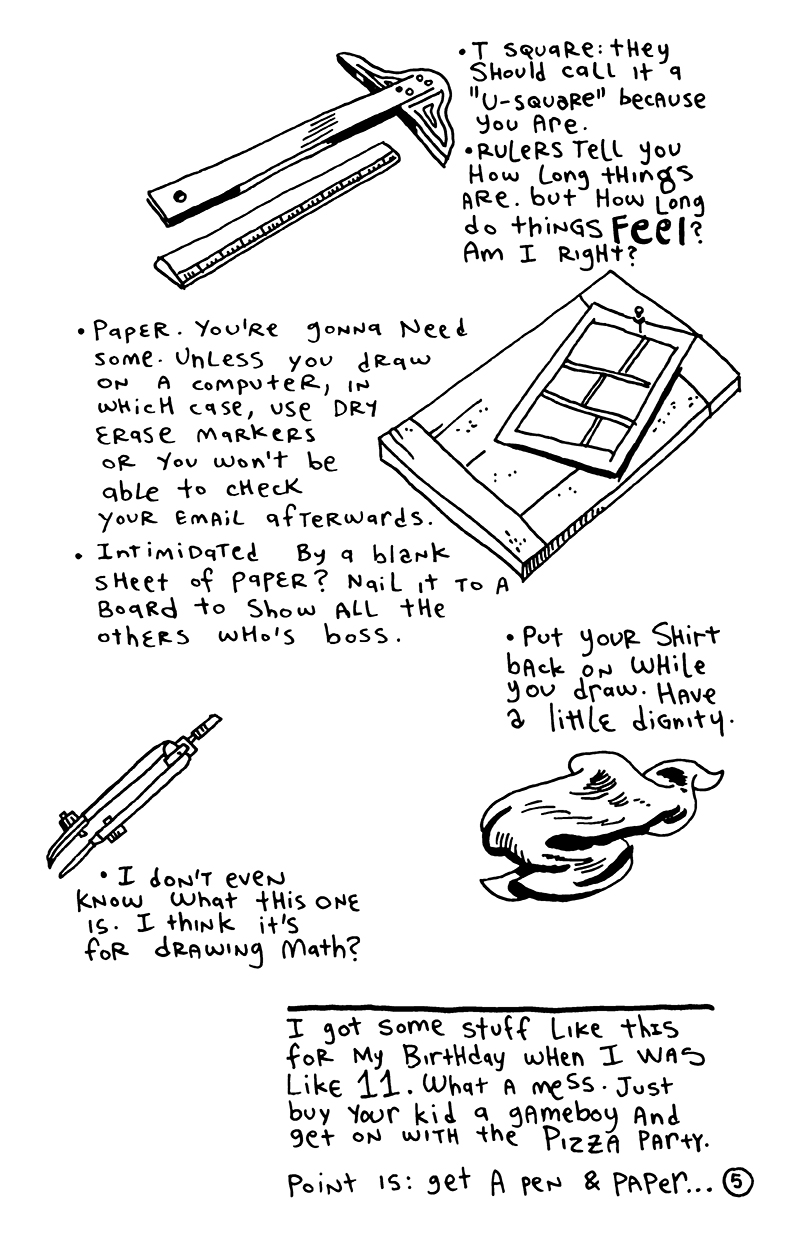 • T SQUARE: tHEy
SHould call it a
"U-SQUARE" because
you Are.
• RULERS Tell you
How Long tHings
ARE. but How Long
do things Feel?
Am I RigHt?
• PapER. You'RE gonna Need
some. Unless you draw
on A computer, in
wHicH case, use DRY
ERase maRkers
OR You won't be
able to cHeck
youR Email afTERwards.
• Intimidated By a blank
sHeet of papER? Nail it To A
BoaRd to Show ALL tHe
otHERS WHo's boss.
• Put youR SHirt
bAck on WHile
you draw. Have
a little dignity.
• I don't even
know what this one
is. I think it's
foR dRawing Math?
I got some stuff Like this
foR My BirtHday wHen I was
LikE 11. What A mess. Just
buy Your kid a gameboy And
get on with the Pizza Party.
Point is: get A pen & paper... 5